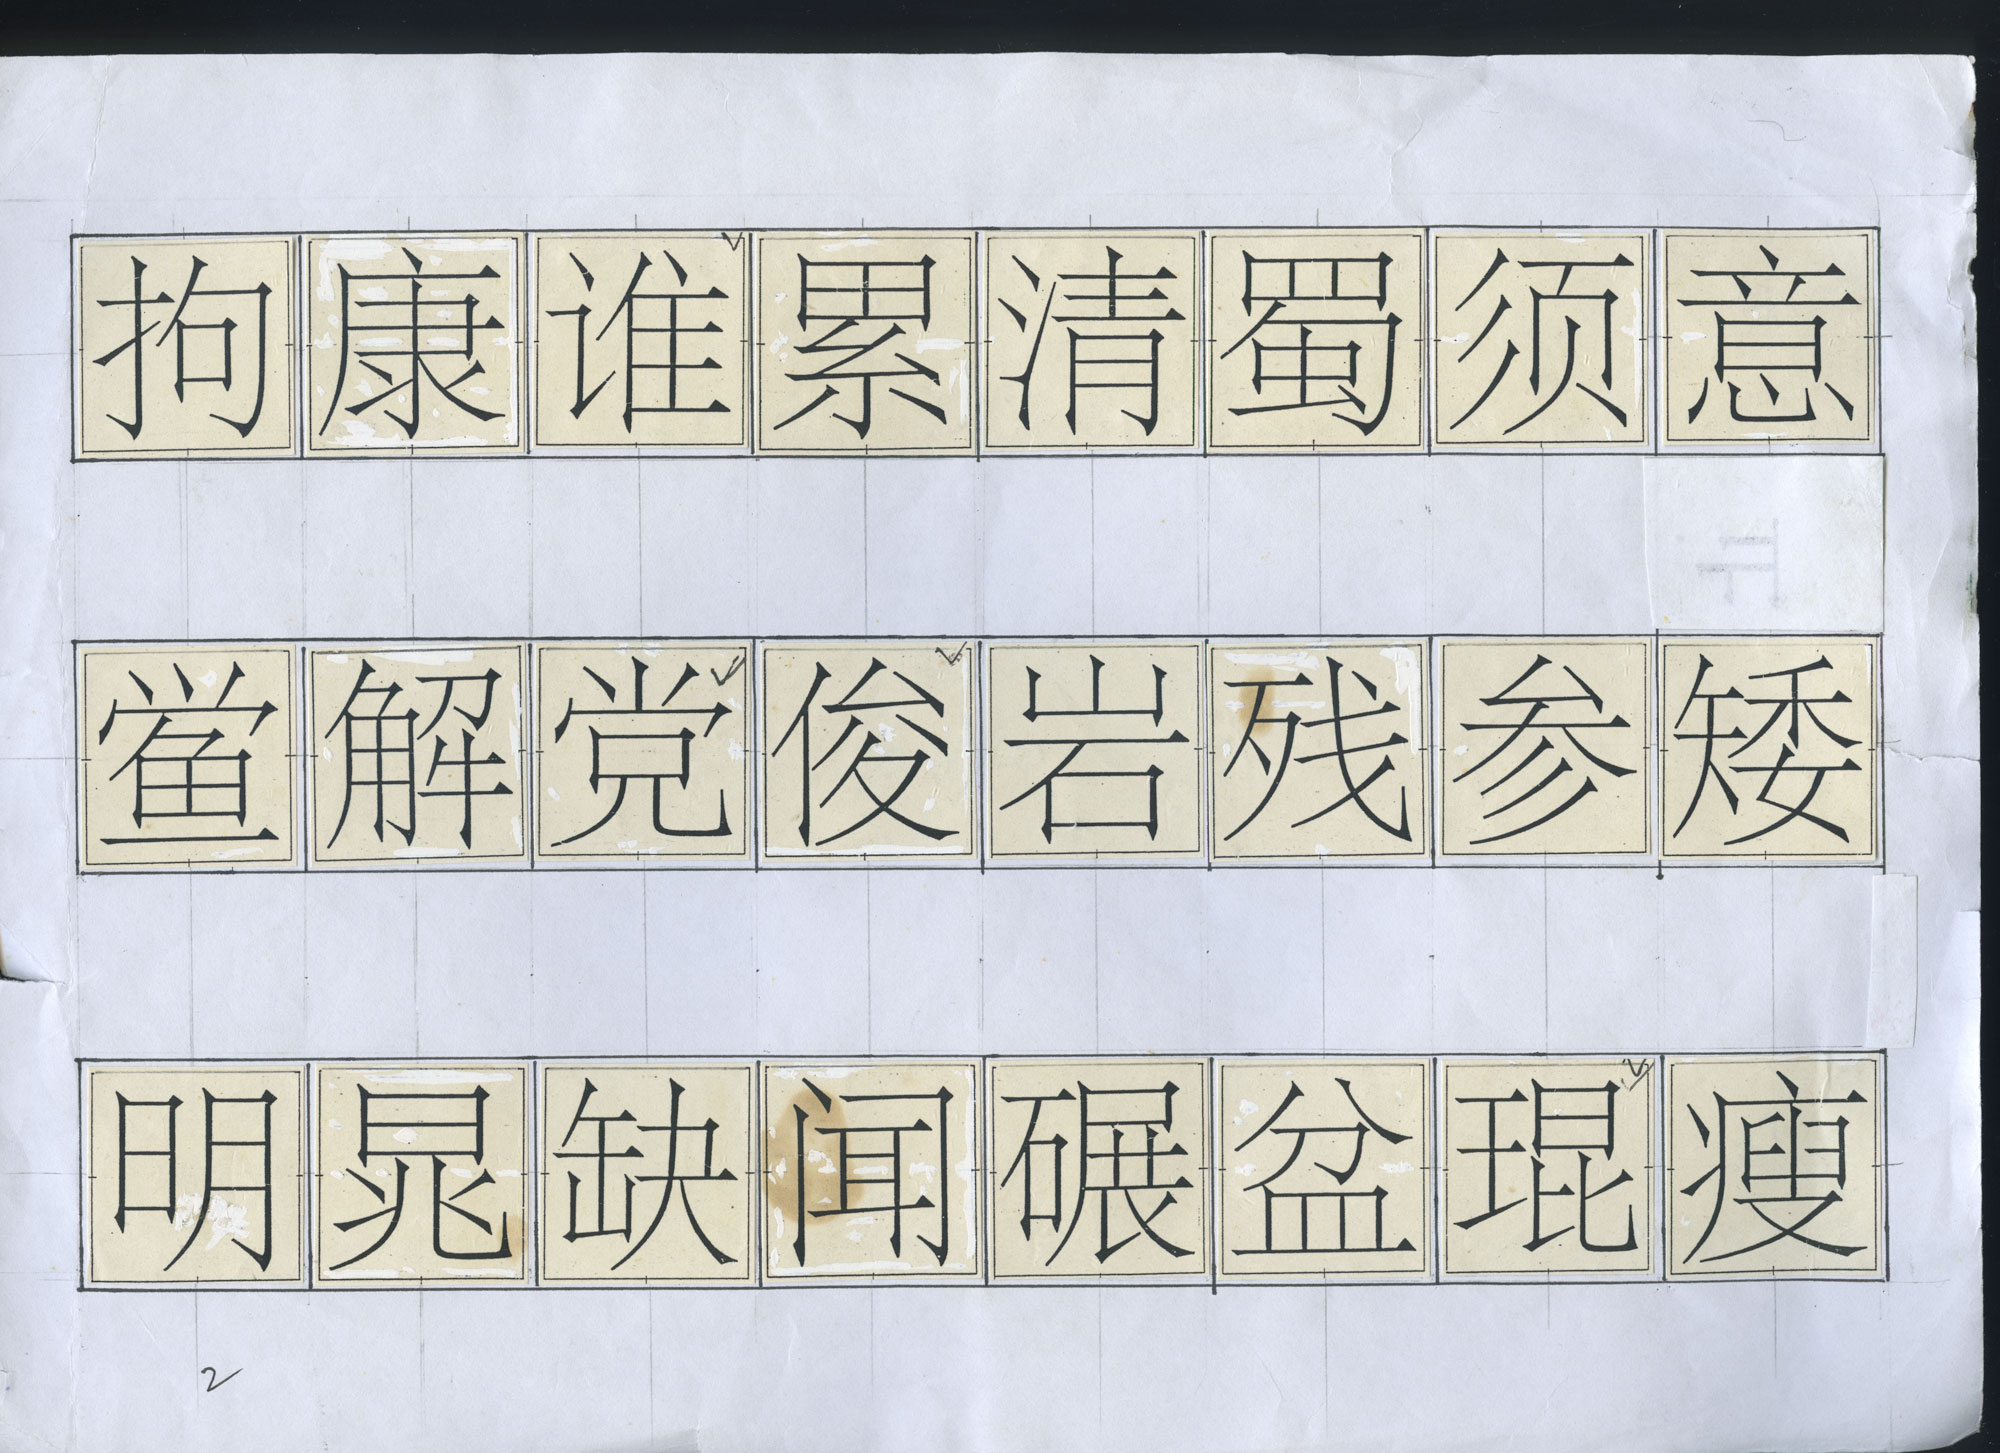 拘康谁累清蜀须意
鲿解党俊岩残参矮
明晃缺闻碾盆琨瘦
2